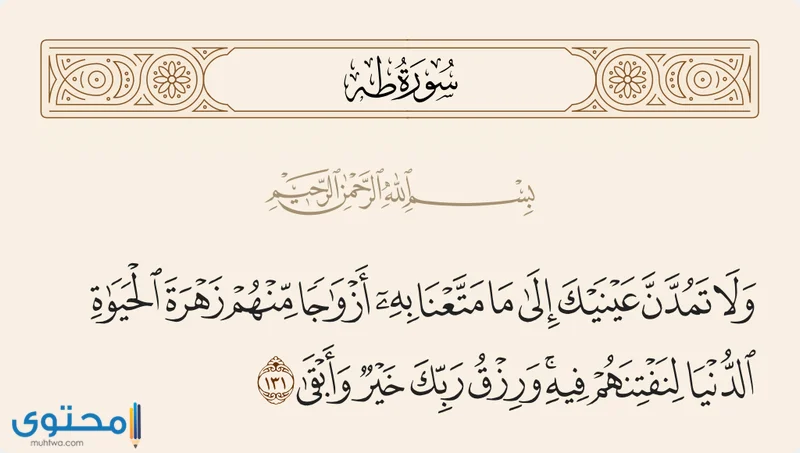 سُورَةُ طه
بِسْمِ ٱللَّهِ ٱلرَّحْمَٰنِ ٱلرَّحِيمِ
وَلَا تَمُدَّنَّ عَيْنَيْكَ إِلَىٰ مَا مَتَّعْنَا بِهِۦٓ أَزْوَٰجًا مِّنْهُمْ زَهْرَةَ ٱلْحَيَوٰةِ
ٱلدُّنْيَا لِنَفْتِنَهُمْ فِيهِ ۚ وَرِزْقُ رَبِّكَ خَيْرٌ وَأَبْقَىٰ ١٣١
محتوى
muhtwa.com